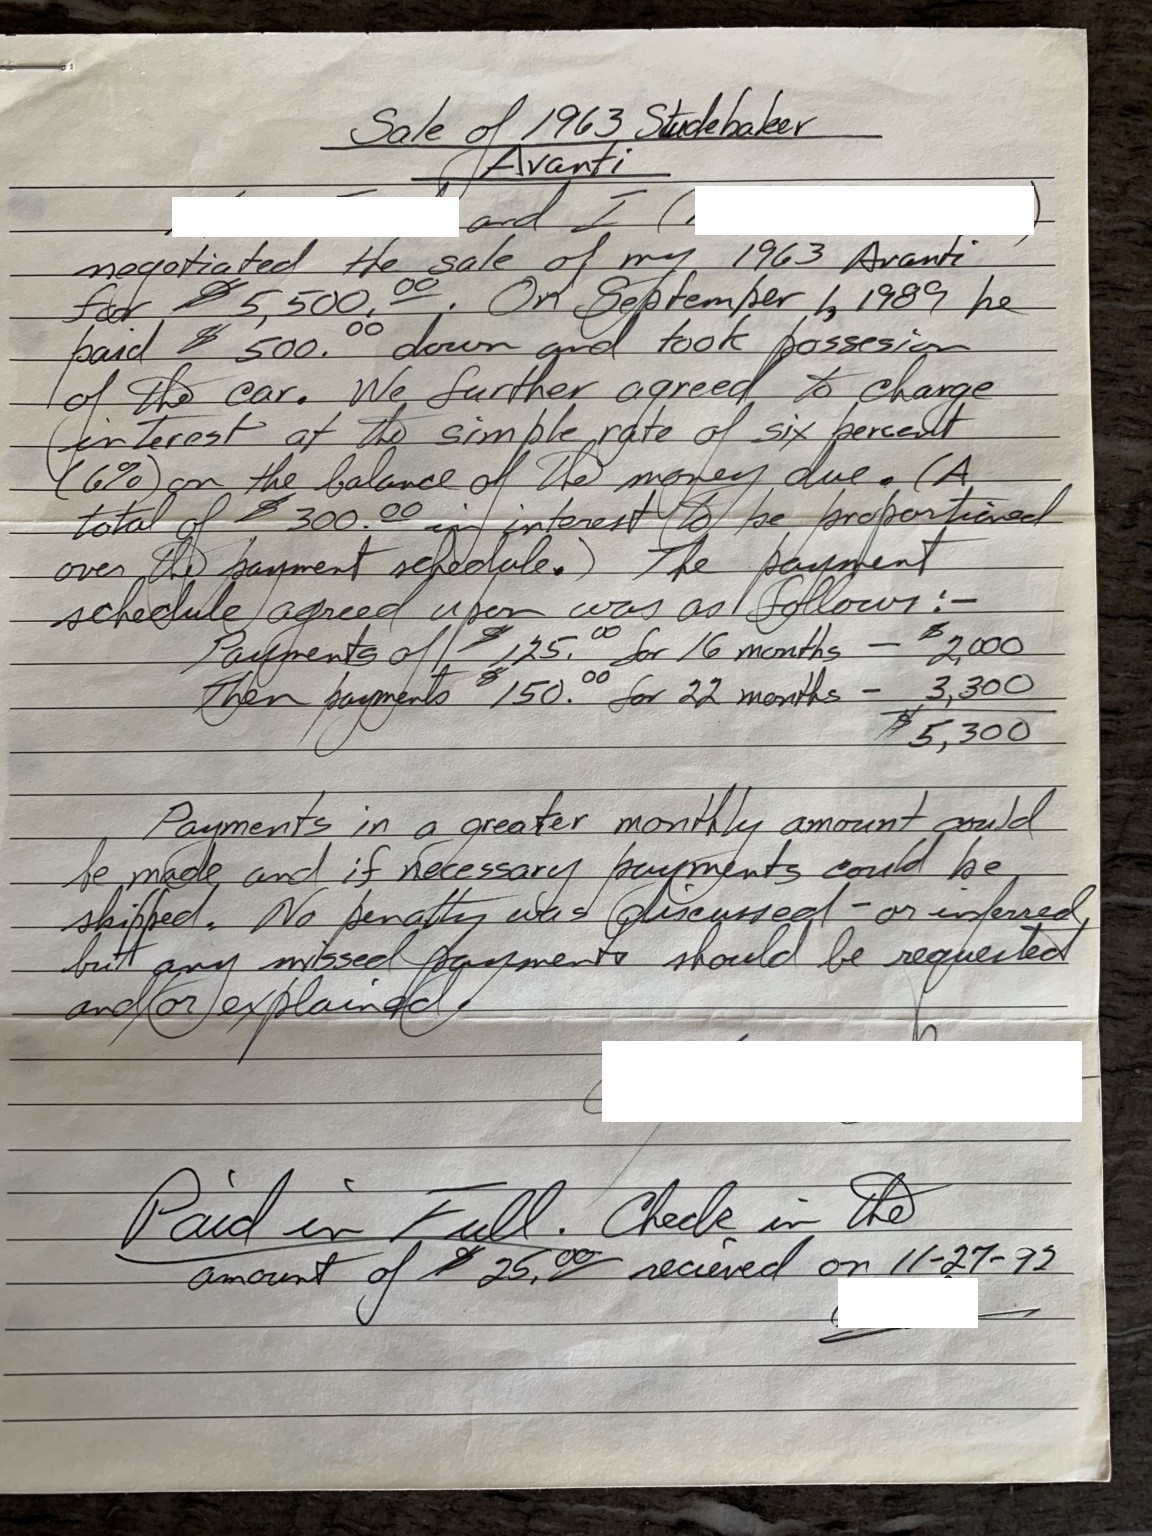 Sale of 1963 Studebaker
Avanti
and I (
)
negotiated the sale of my 1963 Avanti
for $ 5,500.00. On September 1, 1989 he
paid $ 500.00 down and took possesion
of the car. We further agreed to charge
interest at the simple rate of six percent
(6%) on the balance of the money due. (A
total of $ 300.00 in interest to be proportioned
over the payment schedule.) The payment
schedule agreed upon was as follows:-
Payments of $ 125.00 for 16 months - $2,000
Then payments $150.00 for 22 months - 3,300
$5,300
Payments in a greater monthly amount could
be made and if necessary payments could be
skipped. No penalty was discussed - or inferred,
but any missed payments should be requested
and/or explained.
Paid in Full. Check in the
amount of $ 25.00 recieved on 11-27-92